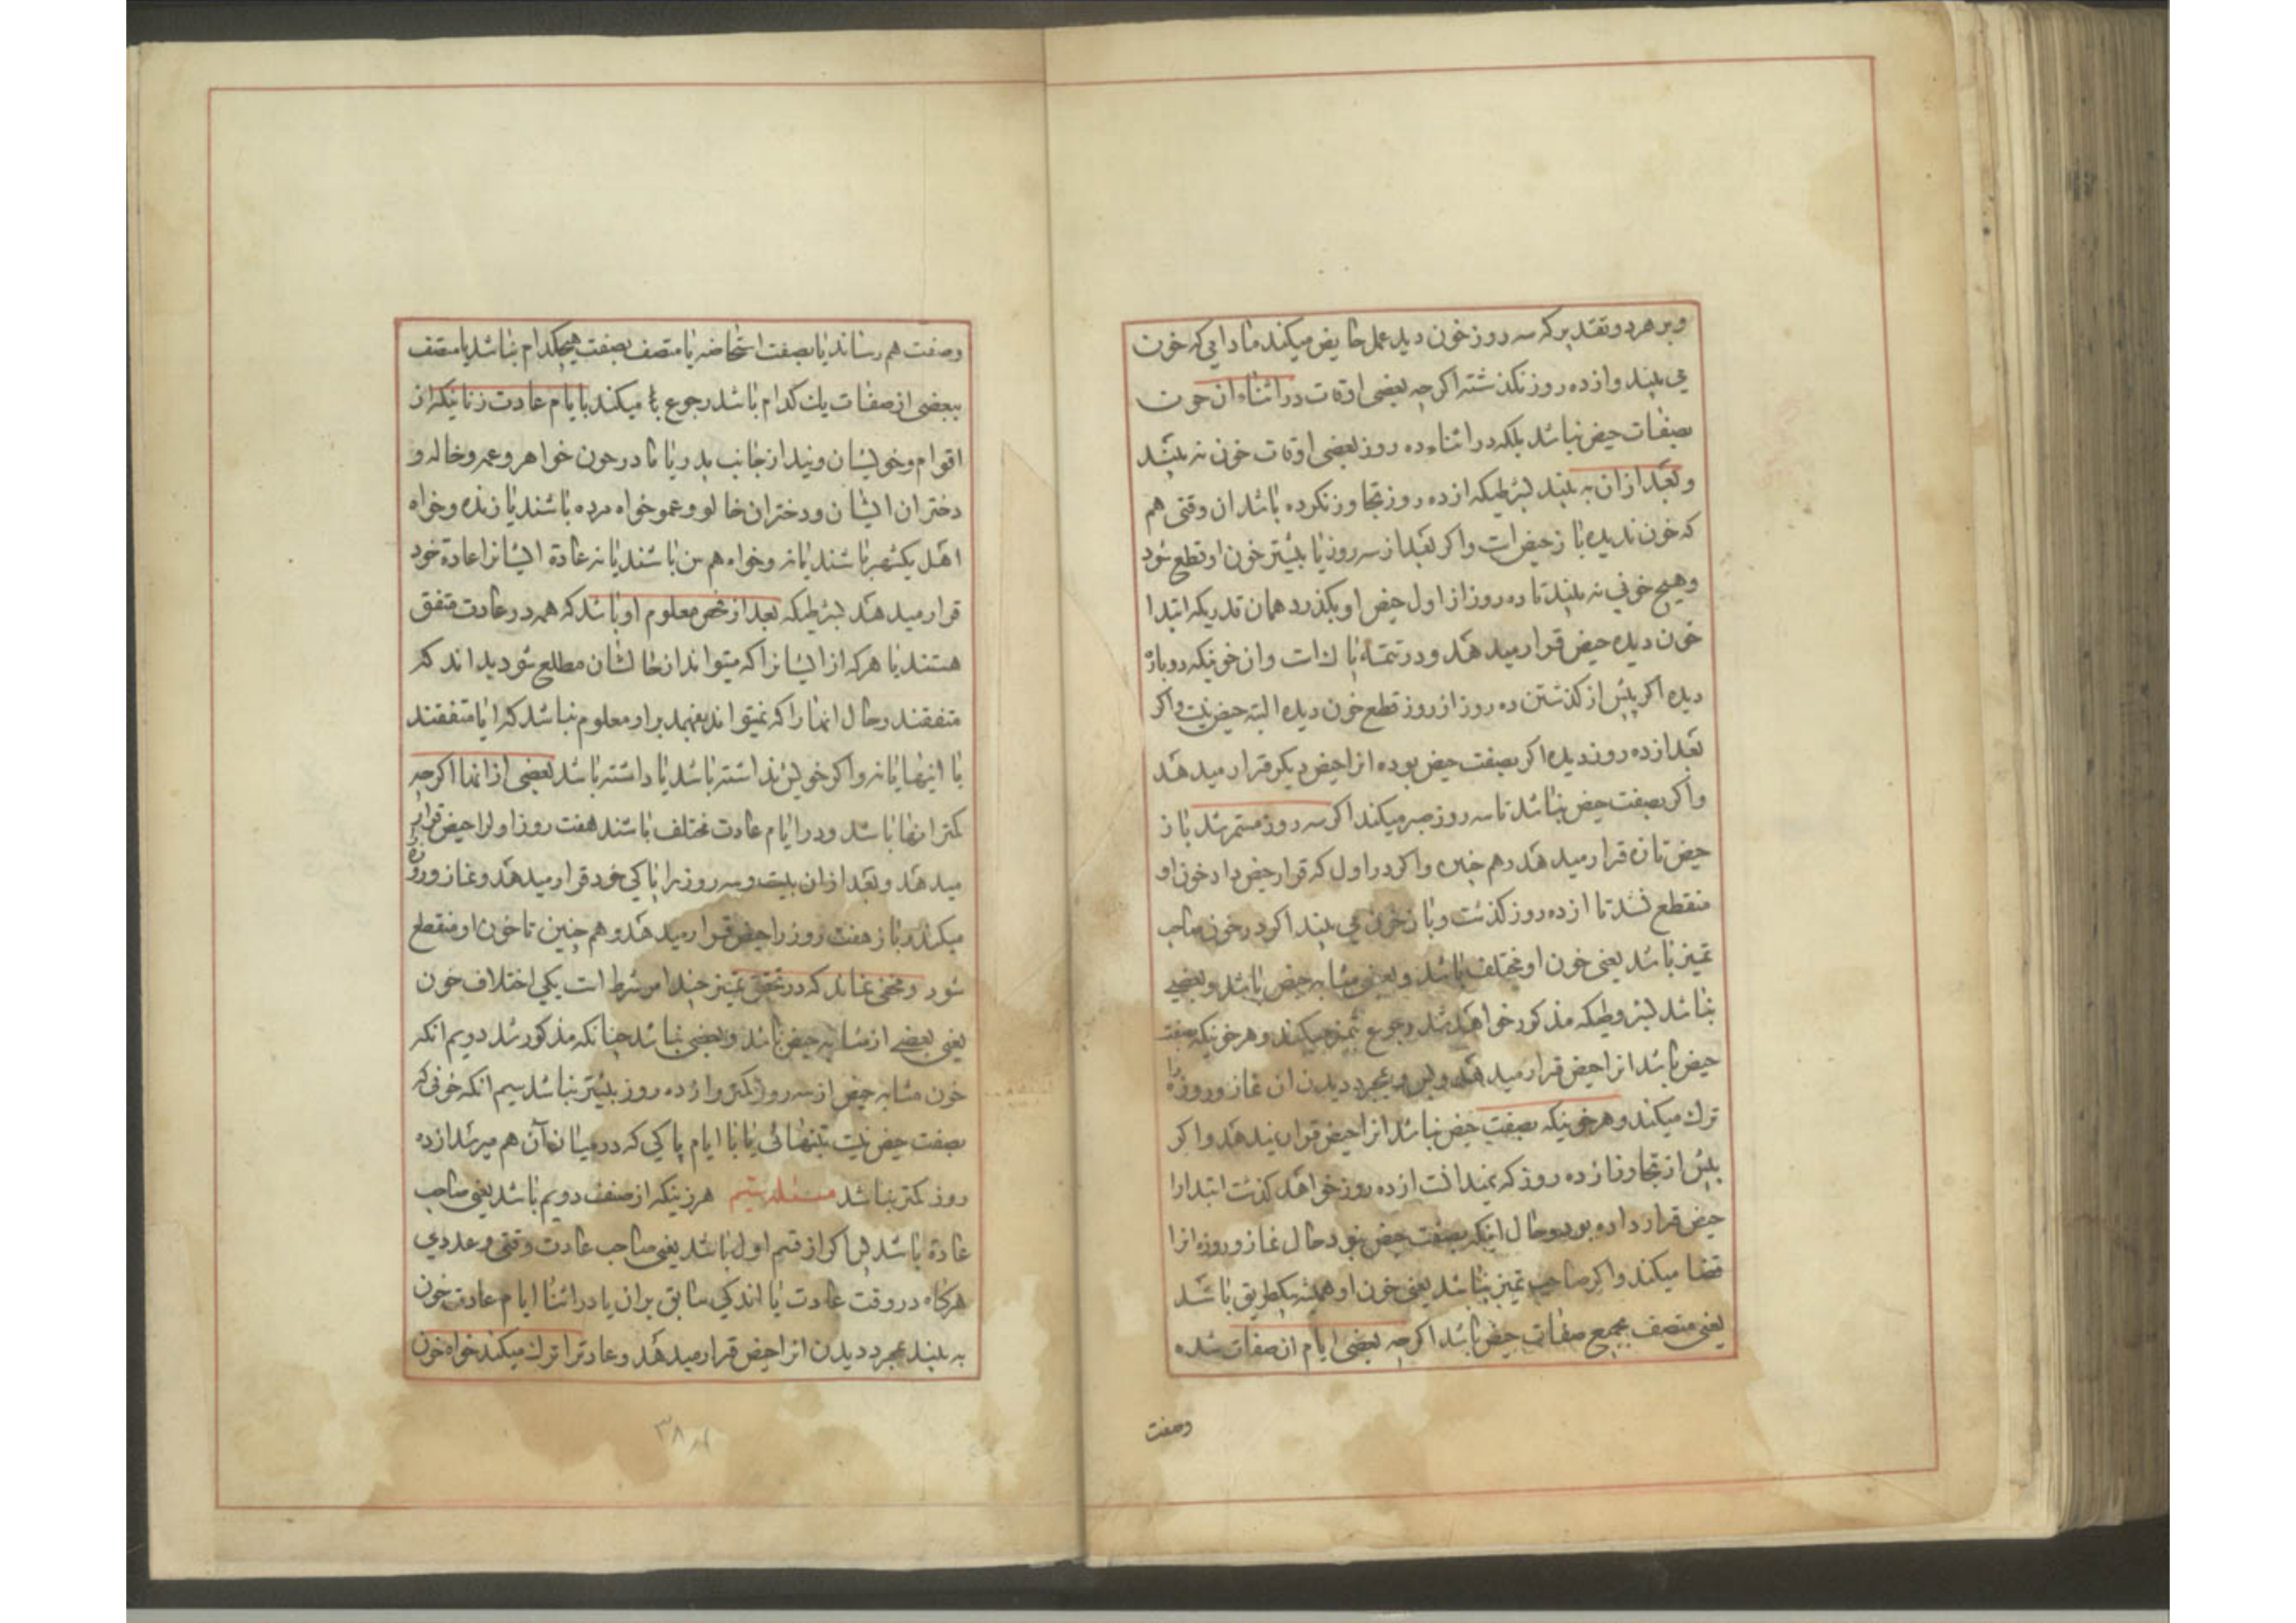 و بر هر دو تقدیر که سه روز خون دید عمل حایض میکند مادامی که خون
می بیند و از ده روز نکذشته اکرچه بعضی اوقات در اثناء ان خون
بصفات حیض نباشد بلکه در اثناء ده روز بعضی اوقات خون نه بیند
و بعد از ان به بیند بشرطیکه از ده روز تجاوز نکرده باشد ان وقتی هم
که خون ندیده باز حیض است و اکر بعد از سه روز یا بیشتر خون او قطع شود
و هیچ خونی نه بیند تا ده روز از اول حیض او بکذرد همان قدریکه ابتدا
خون دیده حیض قرار میدهد و در تتمه پاک است و ان خونیکه دوباره
دیده اکر پیش از کذشتن ده روز از روز قطع خون دیده البته حیض نیست و اکر
بعد از ده روز دیده اکر بصفت حیض بوده انرا حیض دیکر قرار میدهد
و اکر بصفت حیض نباشد تا سه روز صبر میکند اکر سه روز مستمر شد باز
حیض تازه قرار میدهد و هم چنین و اکر در اول که قرار حیض داد خون او
منقطع نشد تا از ده روز کذشت و باز خون می بیند اکر در خون صاحب
تمیز باشد یعنی خون او مختلف باشد و بعضی مشابه حیض باشد و بعضی
نباشد بشروطیکه مذکور خواهد شد رجوع بتمیز میکند و هر خونیکه بصفت
حیض باشد انرا حیض قرار میدهد و بمجرد دیدن ان نماز و روزه را
ترک میکند و هر خونیکه بصفت حیض نباشد انرا حیض قرار نمیدهد و اکر
پیش از تجاوز از ده روز که نمیدانست از ده روز خواهد کذشت ابتدا را
حیض قرار داده بود و حال اینکه بصفت حیض نبود حال نماز و روزه انرا
قضا میکند و اکر صاحب تمیز نباشد یعنی خون او همیشه بیکطریق باشد
یعنی متصف بجمیع صفات حیض باشد اکرچه بعضی ایام ان صفات شده
وصفت
وصفت هم رساند یا بصفت استحاضه یا متصف بصفت هیچکدام نباشد یا متصف
ببعضی از صفات یک کدام باشد رجوع میکند بایام عادت زنانیکه از
اقوام و خویشان ویند از جانب پدر یا مادر چون خواهر و عمه و خاله و
دختران ایشان و دختران خالو و عمو خواه مرده باشند یا زنده و خواه
اهل یکشهر باشند یا نه و خواه هم سن باشند یا نه عادة ایشانرا عادة خود
قرار میدهد بشرطیکه بعد از فحص معلوم او باشد که همه در عادت متفق
هستند یا هر که از ایشانرا که میتواند از حالشان مطلع شود بداند که
متفقند و حال انها را که نمیتواند بفهمد بر او معلوم نباشد که ایا متفقند
با اینها یا نه و اکر خویش نداشته باشد یا داشته باشد بعضی از انها اکرچه
کمتر انها باشد و در ایام عادت مختلف باشند هفت روز اول را حیض قرار
میدهد و بعد از ان بیست و سه روز را پاکی خود قرار میدهد و نماز و روزه
میکند و باز هفت روز را حیض قرار میدهد و هم چنین تا خون او منقطع
شود و مخفی نماند که در تحقق تمیز چند امر شرط است یکی اختلاف خون
یعنی بعضی از مشابه حیض باشد و بعضی نباشد چنانکه مذکور شد دویم انکه
خون مشابه حیض از سه روز کمتر و از ده روز بیشتر نباشد سیم انکه خونی که
بصفت حیض نیست بتنهائی یا با ایام پاکی که در میان آن هم میرسد از ده
روز کمتر نباشد مسئله هر زنیکه از صنف دویم باشد یعنی صاحب
عادة باشد پس اکر از قسم اول باشد یعنی صاحب عادت وقتی و عددی
هرکاه در وقت عادت یا اندکی سابق بر ان یا در اثنا ایام عادت خون
به بیند بمجرد دیدن انرا حیض قرار میدهد و عادترا ترک میکند خواه خون
۳۸